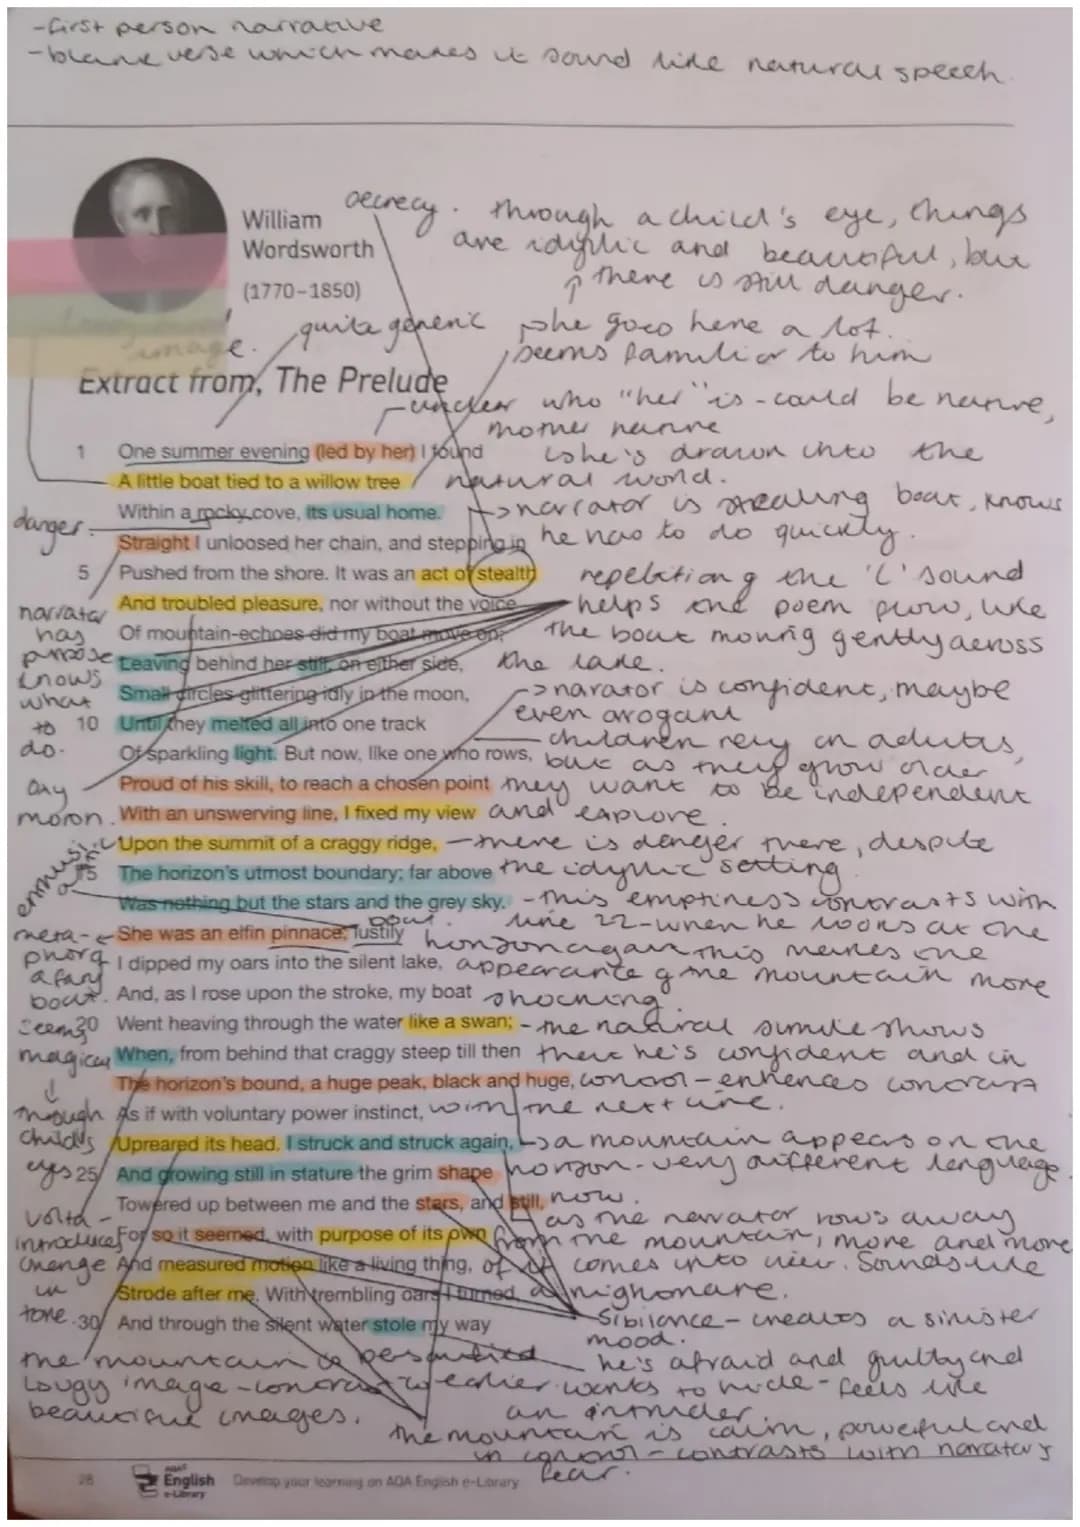 -first person narrative
-blank verse which makes it sound like natural speech.
William
Wordsworth
(1770-1850)
secrecy.
through a child's eye, things
are idyllic and beautiful, but
there is still danger.
quite generic
image.
she goes here a lot.
seems familiar to him
Extract from, The Prelude
unclear who "her" is - could be nature,
mother nature
she's drawn into the
natural world.
1 One summer evening (led by her) I found
A little boat tied to a willow tree
Within a rocky cove, its usual home.
Straight I unloosed her chain, and stepping in
5 Pushed from the shore. It was an act of stealth
And troubled pleasure, nor without the voice
Of mountain-echoes did my boat move on;
Leaving behind her still, on either side,
Small circles glittering idly in the moon,
10 Until they melted all into one track
Of sparkling light. But now, like one who rows,
Proud of his skill, to reach a chosen point
With an unswerving line, I fixed my view
Upon the summit of a craggy ridge,
15 The horizon's utmost boundary; far above
Was nothing but the stars and the grey sky.
She was an elfin pinnace; lustily
I dipped my oars into the silent lake,
And, as I rose upon the stroke, my boat
20 Went heaving through the water like a swan;
When, from behind that craggy steep till then
The horizon's bound, a huge peak, black and huge,
As if with voluntary power instinct,
Upreared its head. I struck and struck again,
25 And growing still in stature the grim shape
Towered up between me and the stars, and still,
For so it seemed, with purpose of its own
And measured motion like a living thing,
Strode after me. With trembling oars I turned,
30 And through the silent water stole my way
narrator is stealing boat, knows
he has to do quickly.
repetition of the 'L' sound
helps the poem flow, like
the boat moving gently across
the lake.
narator is confident, maybe
even arogant
children rely on adults,
but as they grow older
they want to be independent
and explore.
there is danger there, despite
the idyllic setting.
this emptiness contrasts with
line 22-when he looks at the
horizon again this makes the
appearance of the mountain more
shocking.
boat.
the natural simile shows
that he's confident and in
control - enhances contrast
with the next line.
a mountain appears on the
horizon - very different language
now.
as the narrator rows away
from the mountain, more and more
of it comes into view. Sounds like
a nighmare.
Sibilance - creates a sinister
mood.
he's afraid and guilty and
wants to hide - feels like
an intruder.
the mountain is calm, powerful and
in control - contrasts with narator's
fear.
danger.
narrator
has
purpose
knows
what
to
do.
meta-
phor of
a fairy
boat.
seems
magical
through
child's
eyes
volta -
introduces
change
in
tone.
the mountain is personified
image - contrast w earlier
images.
28
AQA
English
e-Library
Develop your learning on AQA English e-Library